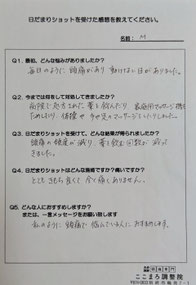 日だまりショットを受けた感想を教えてください。
名前： M
Q1. 最初、どんな悩みがありましたか？
毎日のように頭痛があり 動けない日がありました。
Q2. 今までは何をして対処してきましたか？
病院で処方された薬を飲んだり 家庭用マッサージ機を
ためしたり、体操や 手や足のマッサージをしていました。
Q3. 日だまりショットを受けてどんな変化がありましたか？
頭痛の頻度が減り、薬を飲む回数が減って
きました。
Q4. 日だまりショットはどんな施術ですか？痛いですか？
とても きもち良くて 全く痛くありません。
Q5. どんな人におすすめしますか？
または、一言メッセージをお願い致します
私のように 頭痛で 悩んでいる人に おすすめします。
ここまろ調整院